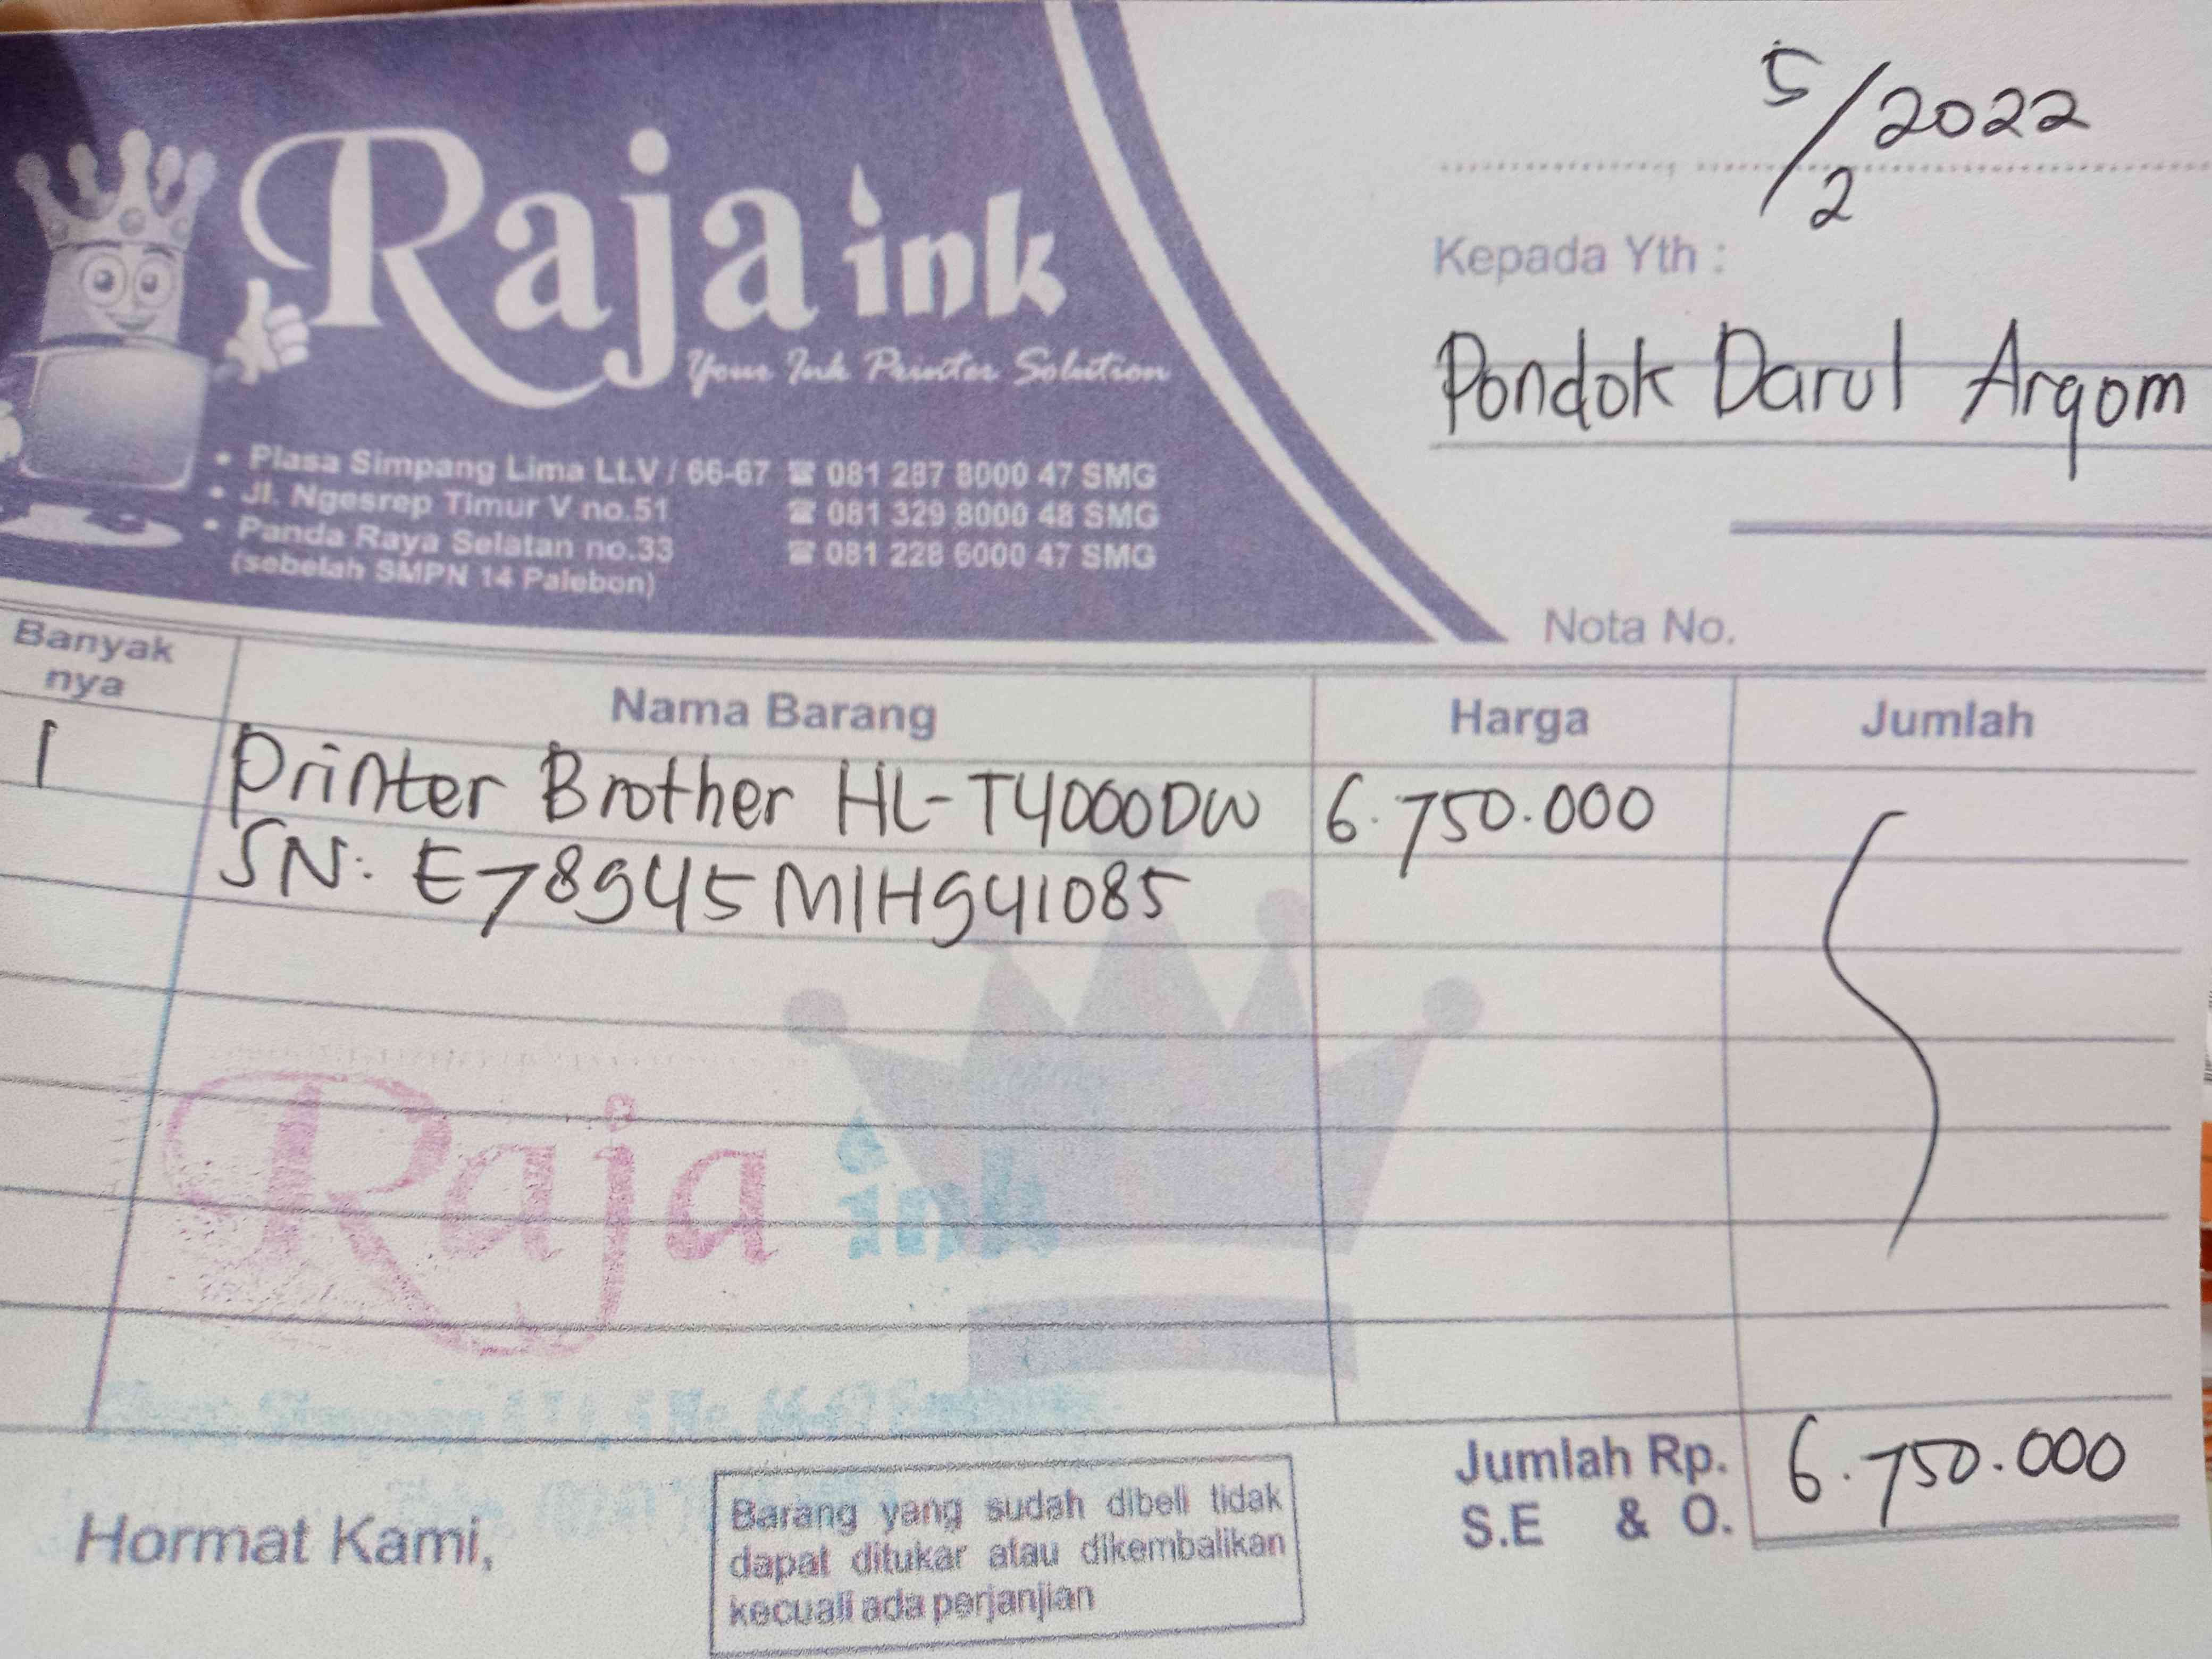 5/2 2022
Raja ink
Your Ink Printer Solution
Kepada Yth :
Pondok Darul Arqom
• Plasa Simpang Lima Lt.V / 66-67 ☎ 081 287 8000 47 SMG
• Jl. Ngesrep Timur V no.51 ☎ 081 329 8000 48 SMG
• Panda Raya Selatan no.33 ☎ 081 228 6000 47 SMG
(sebelah SMPN 14 Palebon)
Nota No.
Banyak nya Nama Barang Harga Jumlah
1 Printer Brother HL-T4000DW 6.750.000
SN: E78945M1H941085
Raja ink
Jumlah Rp. 6.750.000
S.E & O.
Hormat Kami,
Barang yang sudah dibeli tidak
dapat ditukar atau dikembalikan
kecuali ada perjanjian